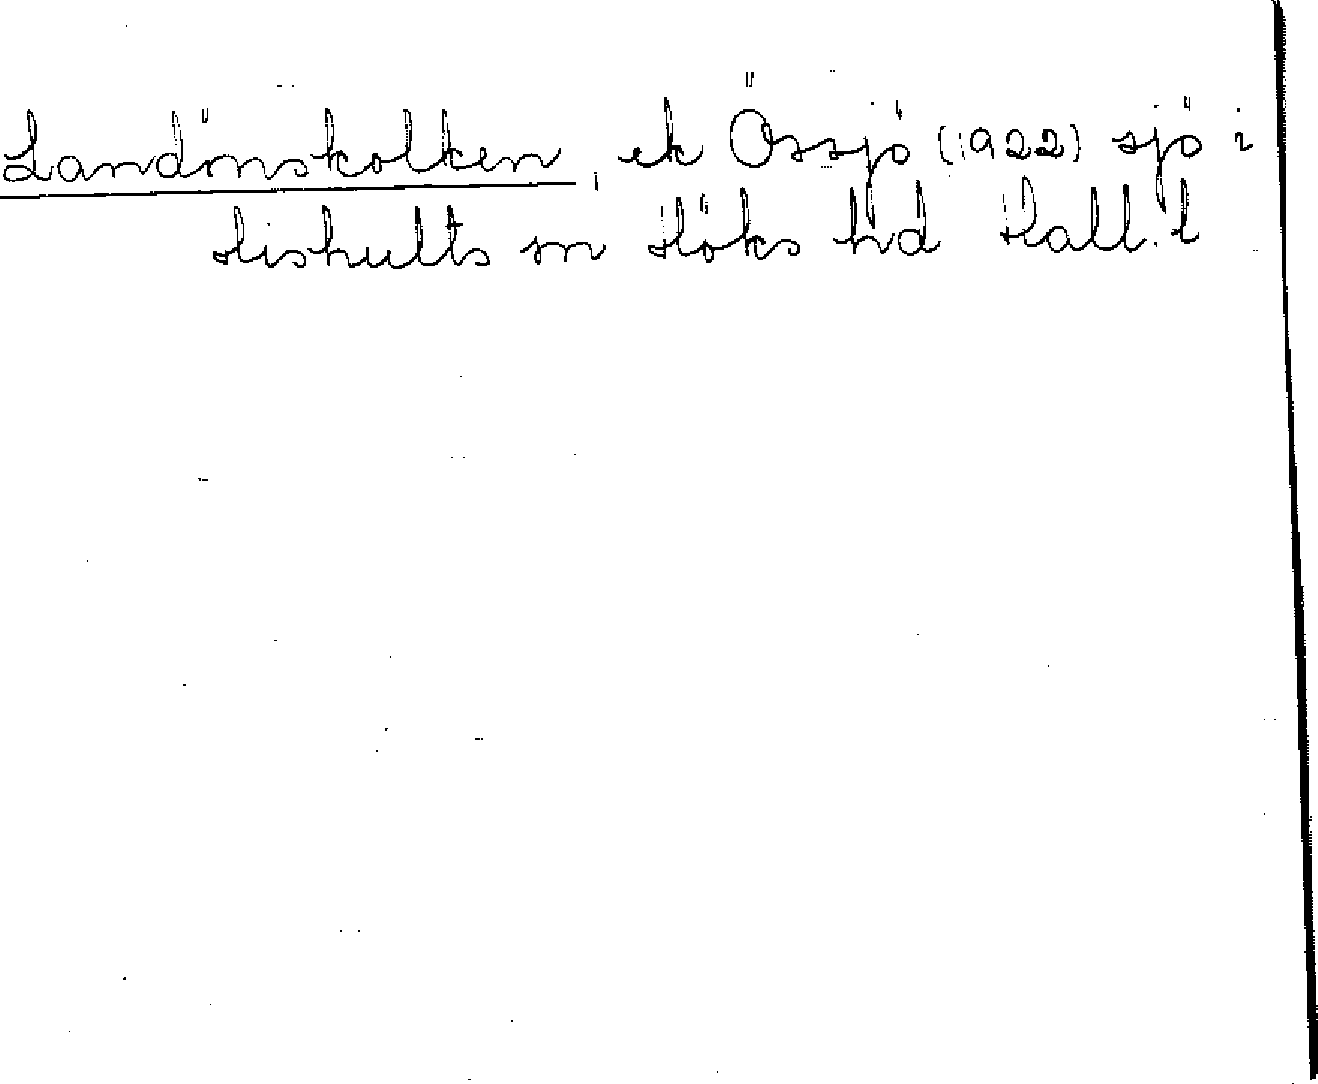 Landönskolken, ek Össjö (1922) sjö i
Hishults sn Höks hd Hall. l